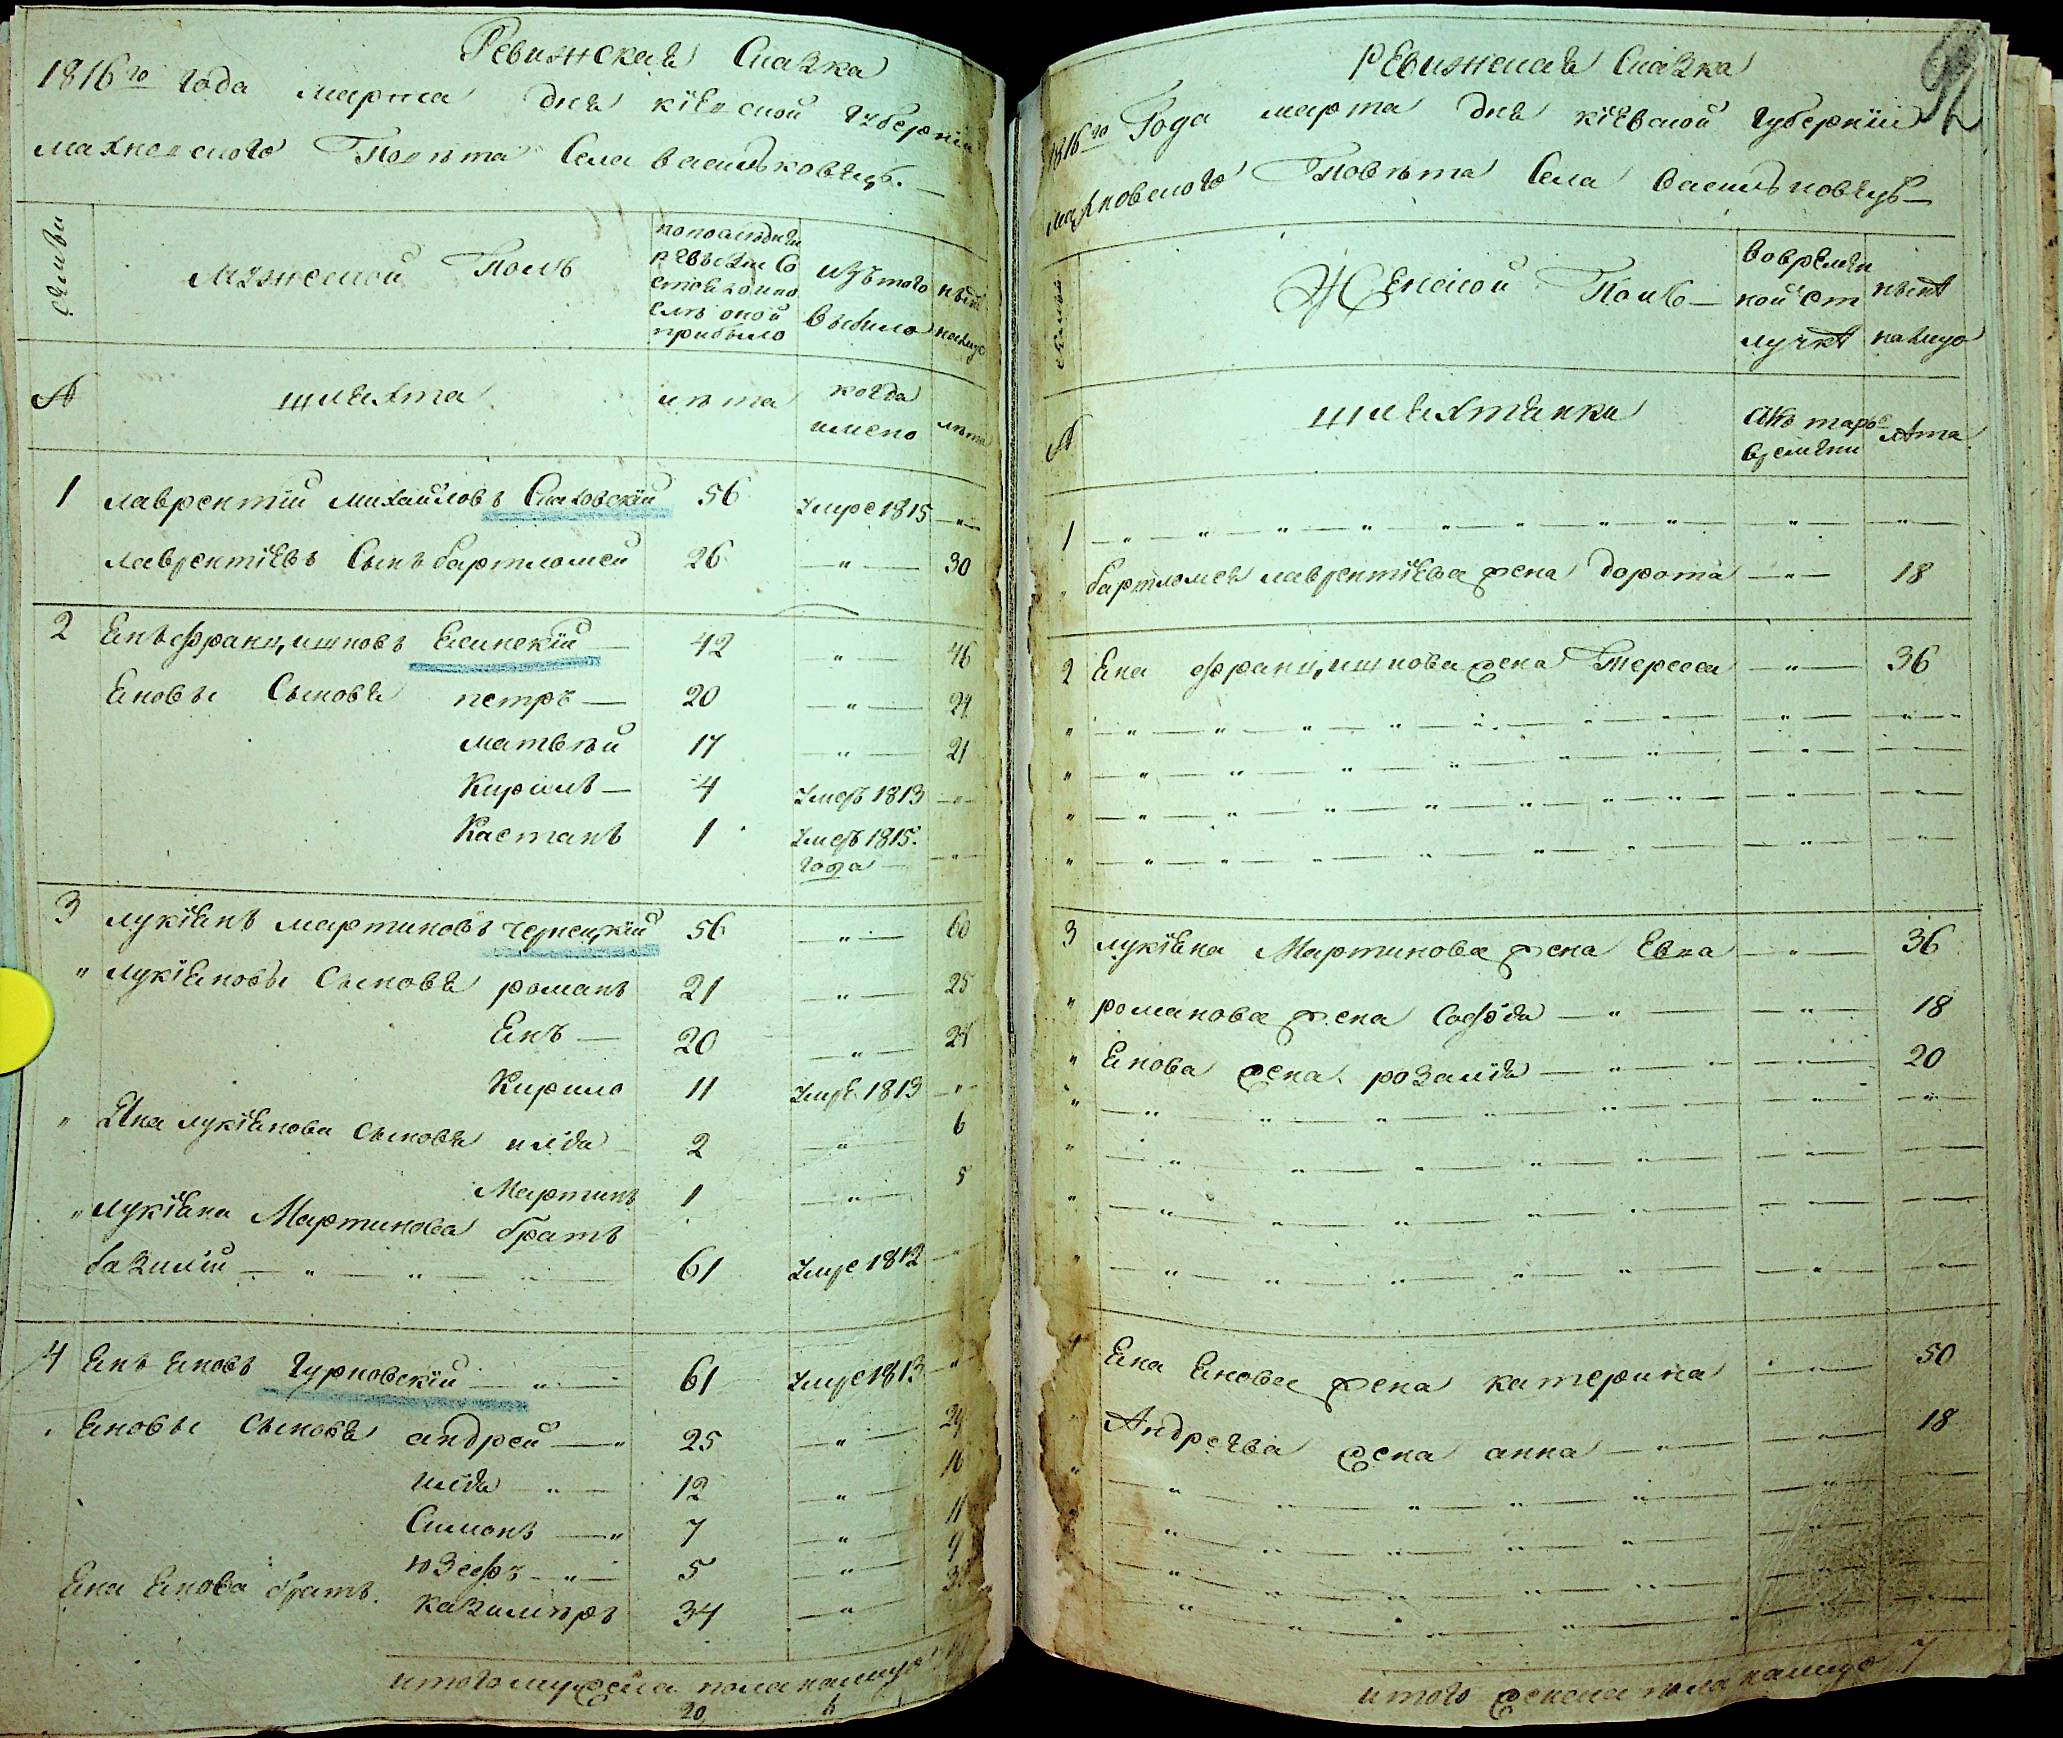 Ревижская Сказка
1816го года марта дня кіевской губерніи
махновского Повѣта Села васильковецъ.
семьи
мужеской Полъ
по последней
ревизіи со
стояло и по
слѣ оной
прибыло
изъ того
выбыло
нынѣ
налицо
№
шляхта
лѣта
когда
имено
лѣта
1 лаврентій михайловъ 56 умре 1815 — „ —
лаврентіевъ Сынъ бартломей 26 — „ — 30
2 Янъ францишковъ Ясинскій — 42 — „ — 46
Яновы Сыновя петръ — 20 — „ — 24
матвѣй 17 — „ — 21
Кирилъ — 4 умеръ 1813 — „ —
Каетанъ 1 умеръ 1815.
года — „ —
3 лукіянъ мартиновъ чернецкій 56 — „ — 60
„ лукіяновы сыновя романъ 21 — „ — 25
Янъ — 20 — „ — 24
Кирило 11 умре 1813 — „
„ Яна лукіянова сыновя илія 2 — „ — 6
Мартинъ 1 — „ — 5
„ лукіяна Мартинова братъ
базилій — „ — „ — 61 умре 1812 — „
4 Янъ яновъ Гурновскій — „ — 61 умре 1813 — „
Яновы сыновя андрей — „ 25 — „ — 29
илія — „ — 12 — „ — 16
Симонъ — „ 7 — „ — 11
юзефъ — „ — 5 — „ — 9
Яна Янова братъ. казимѣръ 34 — „ — 38
итого мужеска пола налицо
20
Ревижская Сказка
1816го Года марта дня кіевской губерніи
махновского Повѣта Села васильковецъ —
семьи
Женской Полъ —
во времян
ной от
лучкѣ
нынѣ
налицо
№
шляхтянки
съ
времяни
лѣта
1 — „ — „ — „ — „ — „ — „ —
„ бартломея лаврентіева жена дорота — „ — 18
2 Яна францишкова жена Тереса — „ — 36
„ — „ — „ — „ — „ — „ —
„ — „ — „ — „ — „ — „ —
„ — „ — „ — „ — „ — „ —
„ — „ — „ — „ — „ — „ —
3 лукіяна Мартинова жена Евва — „ — 36
„ романова жена Софія — „ — „ — 18
„ Янова жена розалія — „ — „ — 20
„ — „ — „ — „ — „ — „ —
„ — „ — „ — „ — „ — „ —
„ — „ — „ — „ — „ — „ —
„ — „ — „ — „ — „ — „ —
4 Яна Янова жена катерина — „ — 50
„ Андреева жена анна — „ — „ — 18
„ — „ — „ — „ — „ — „ —
„ — „ — „ — „ — „ — „ —
„ — „ — „ — „ — „ — „ —
„ — „ — „ — „ — „ — „ —
итого женска пола налицо 7